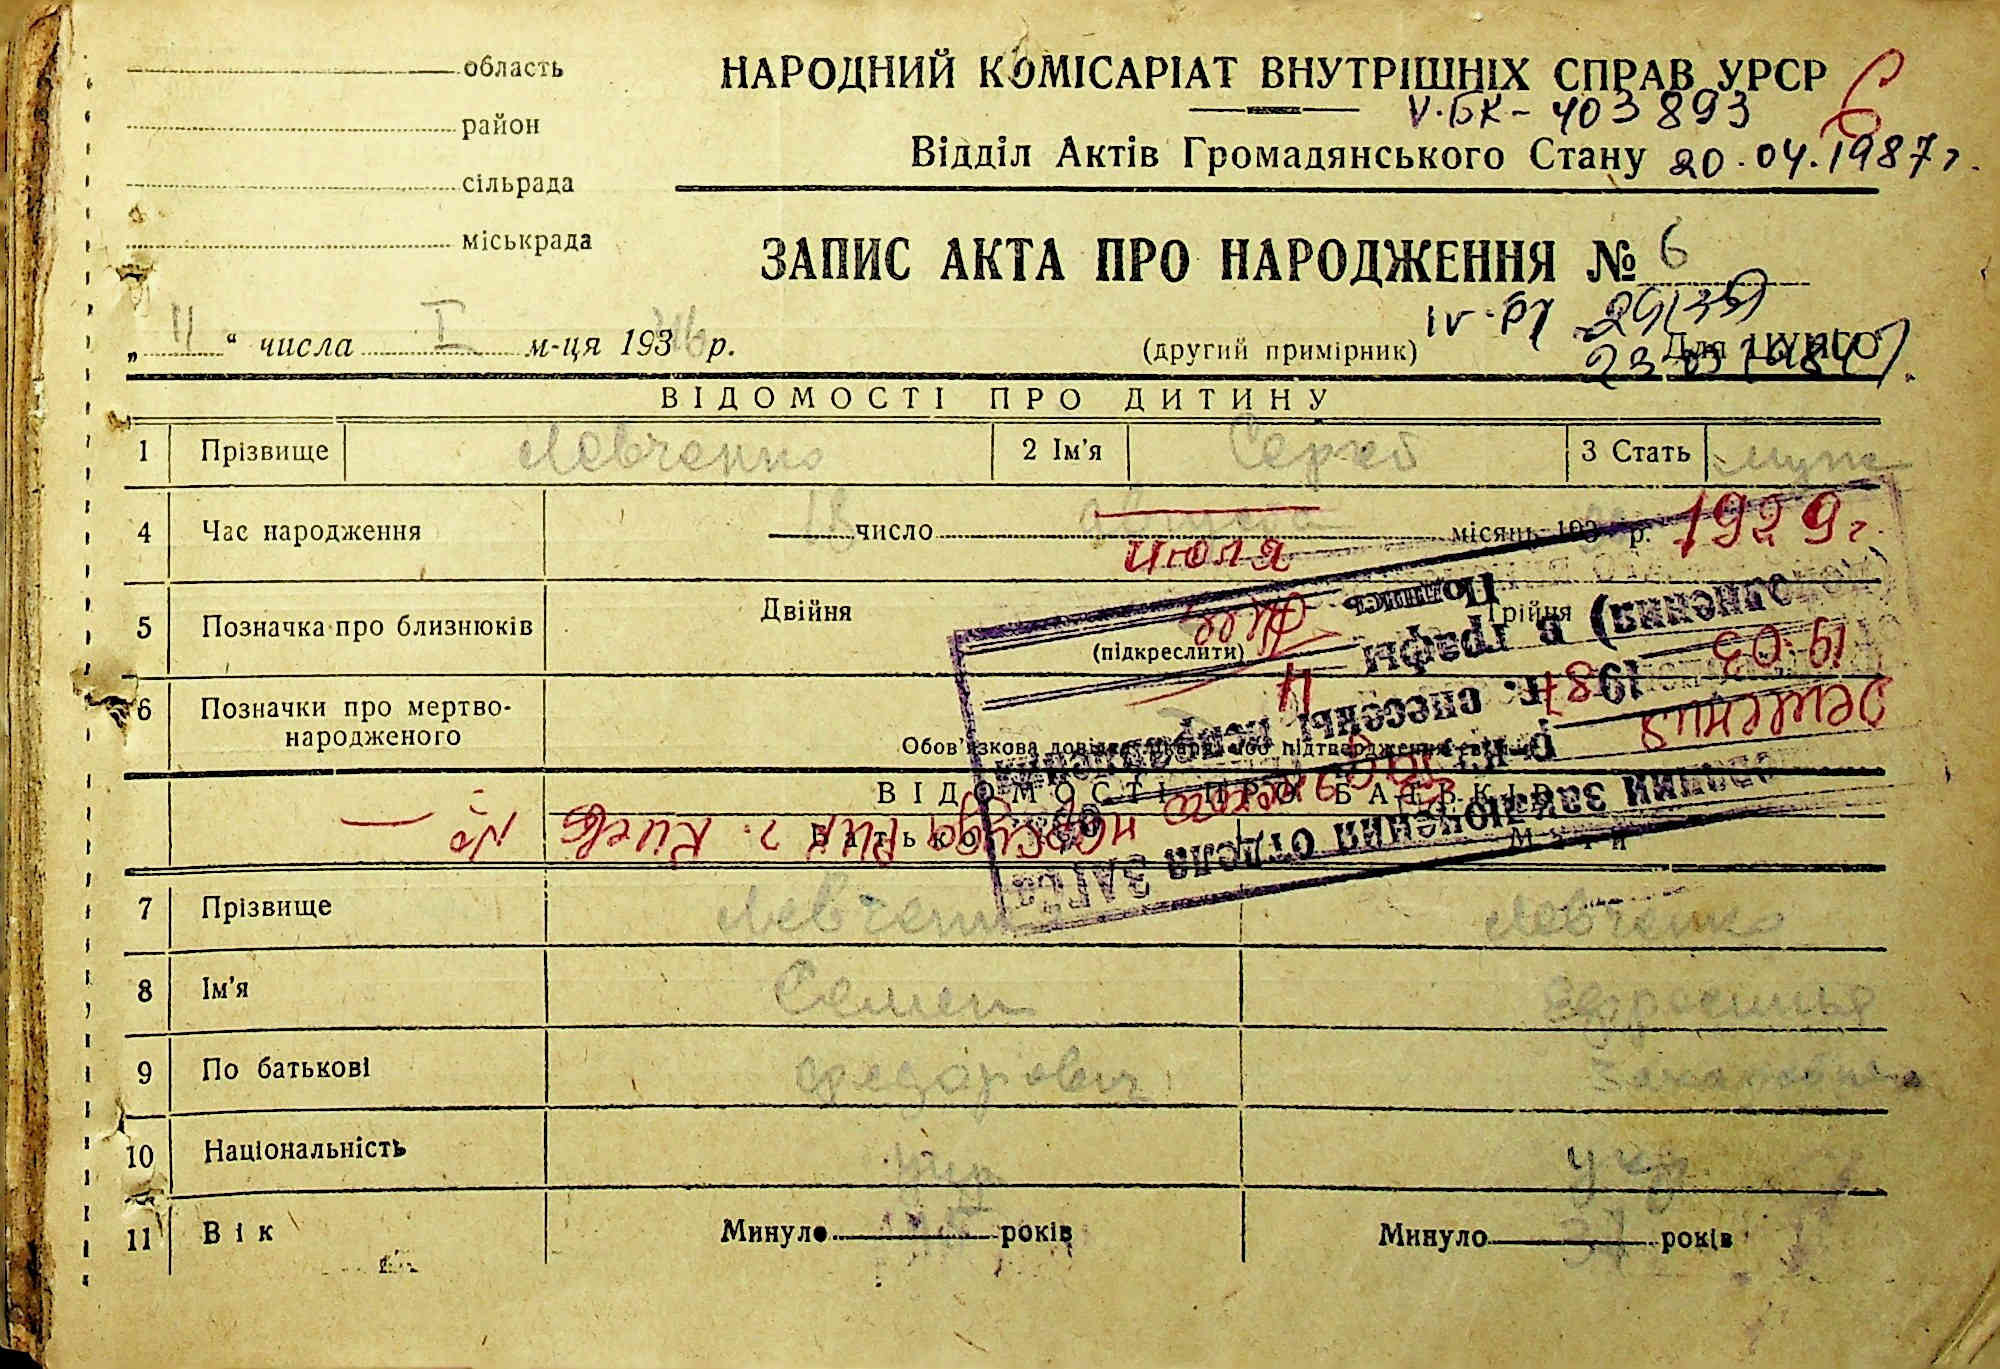 область
район
сільрада
міськрада
НАРОДНИЙ КОМІСАРІАТ ВНУТРІШНІХ СПРАВ УРСР
V-БК-403893
Відділ Актів Громадянського Стану 20.04.1987 г.
ЗАПИС АКТА ПРО НАРОДЖЕННЯ № 6
„ 11 “ числа I м-ця 193 46 р.
(другий примірник)
IV-БЛ
Для ЦУНГО
ВІДОМОСТІ ПРО ДИТИНУ
1 Прізвище Левченко 2 Ім'я Сергей 3 Стать муж
4 Час народження 18 число августа місяць 193 р. 1929 г.
июля
5 Позначка про близнюків Двійня Трійня
(підкреслити)
6 Позначки про мертвонародженого
Обов'язкова довідка лікаря або підтвердження
ВІДОМОСТІ ПРО БАТЬКІВ
Батько Мати
7 Прізвище Левченко Левченко
8 Ім'я Семен
9 По батькові Федорович
10 Національність укр укр.
11 Вік Минуло років Минуло 37 років
заключения отдела ЗАГСа
г. Киева №
решения
19.03 1987 г. внесены исправления
(дополнения) в графы 4
Подпись